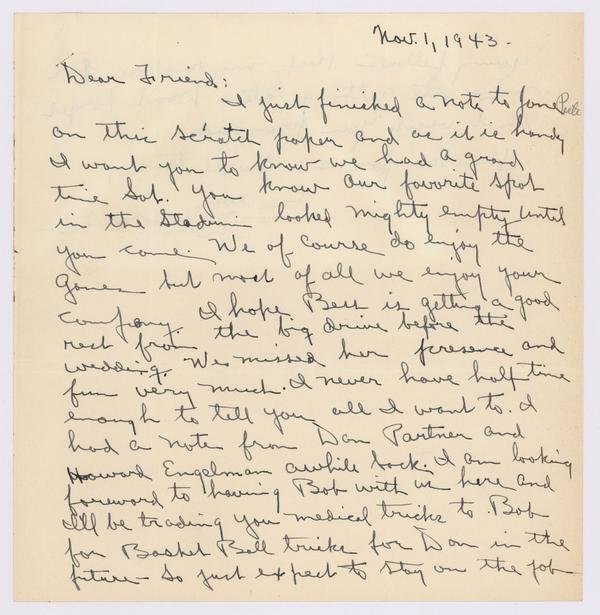 Nov. 1, 1943.
Dear Friend:
I just finished a note to Jane Peele
on this scratch paper and as it is handy
I want you to know we had a grand
time Sat. You know our favorite spot
in the Stadium looked mighty empty until
you came. We of course do enjoy the
Games but most of all we enjoy your
company. I hope Bess is getting a good
rest from the big drive before the
wedding. We missed her presence and
fun very much. I never have half time
enough to tell you all I want to. I
had a note from Dan Partner and
Howard Engelman awhile back. I am looking
foreword to having Bob with us here and
I'll be trading you medical tricks to Bob
for Basket Ball tricks for Don in the
future - So just expect to stay on the job